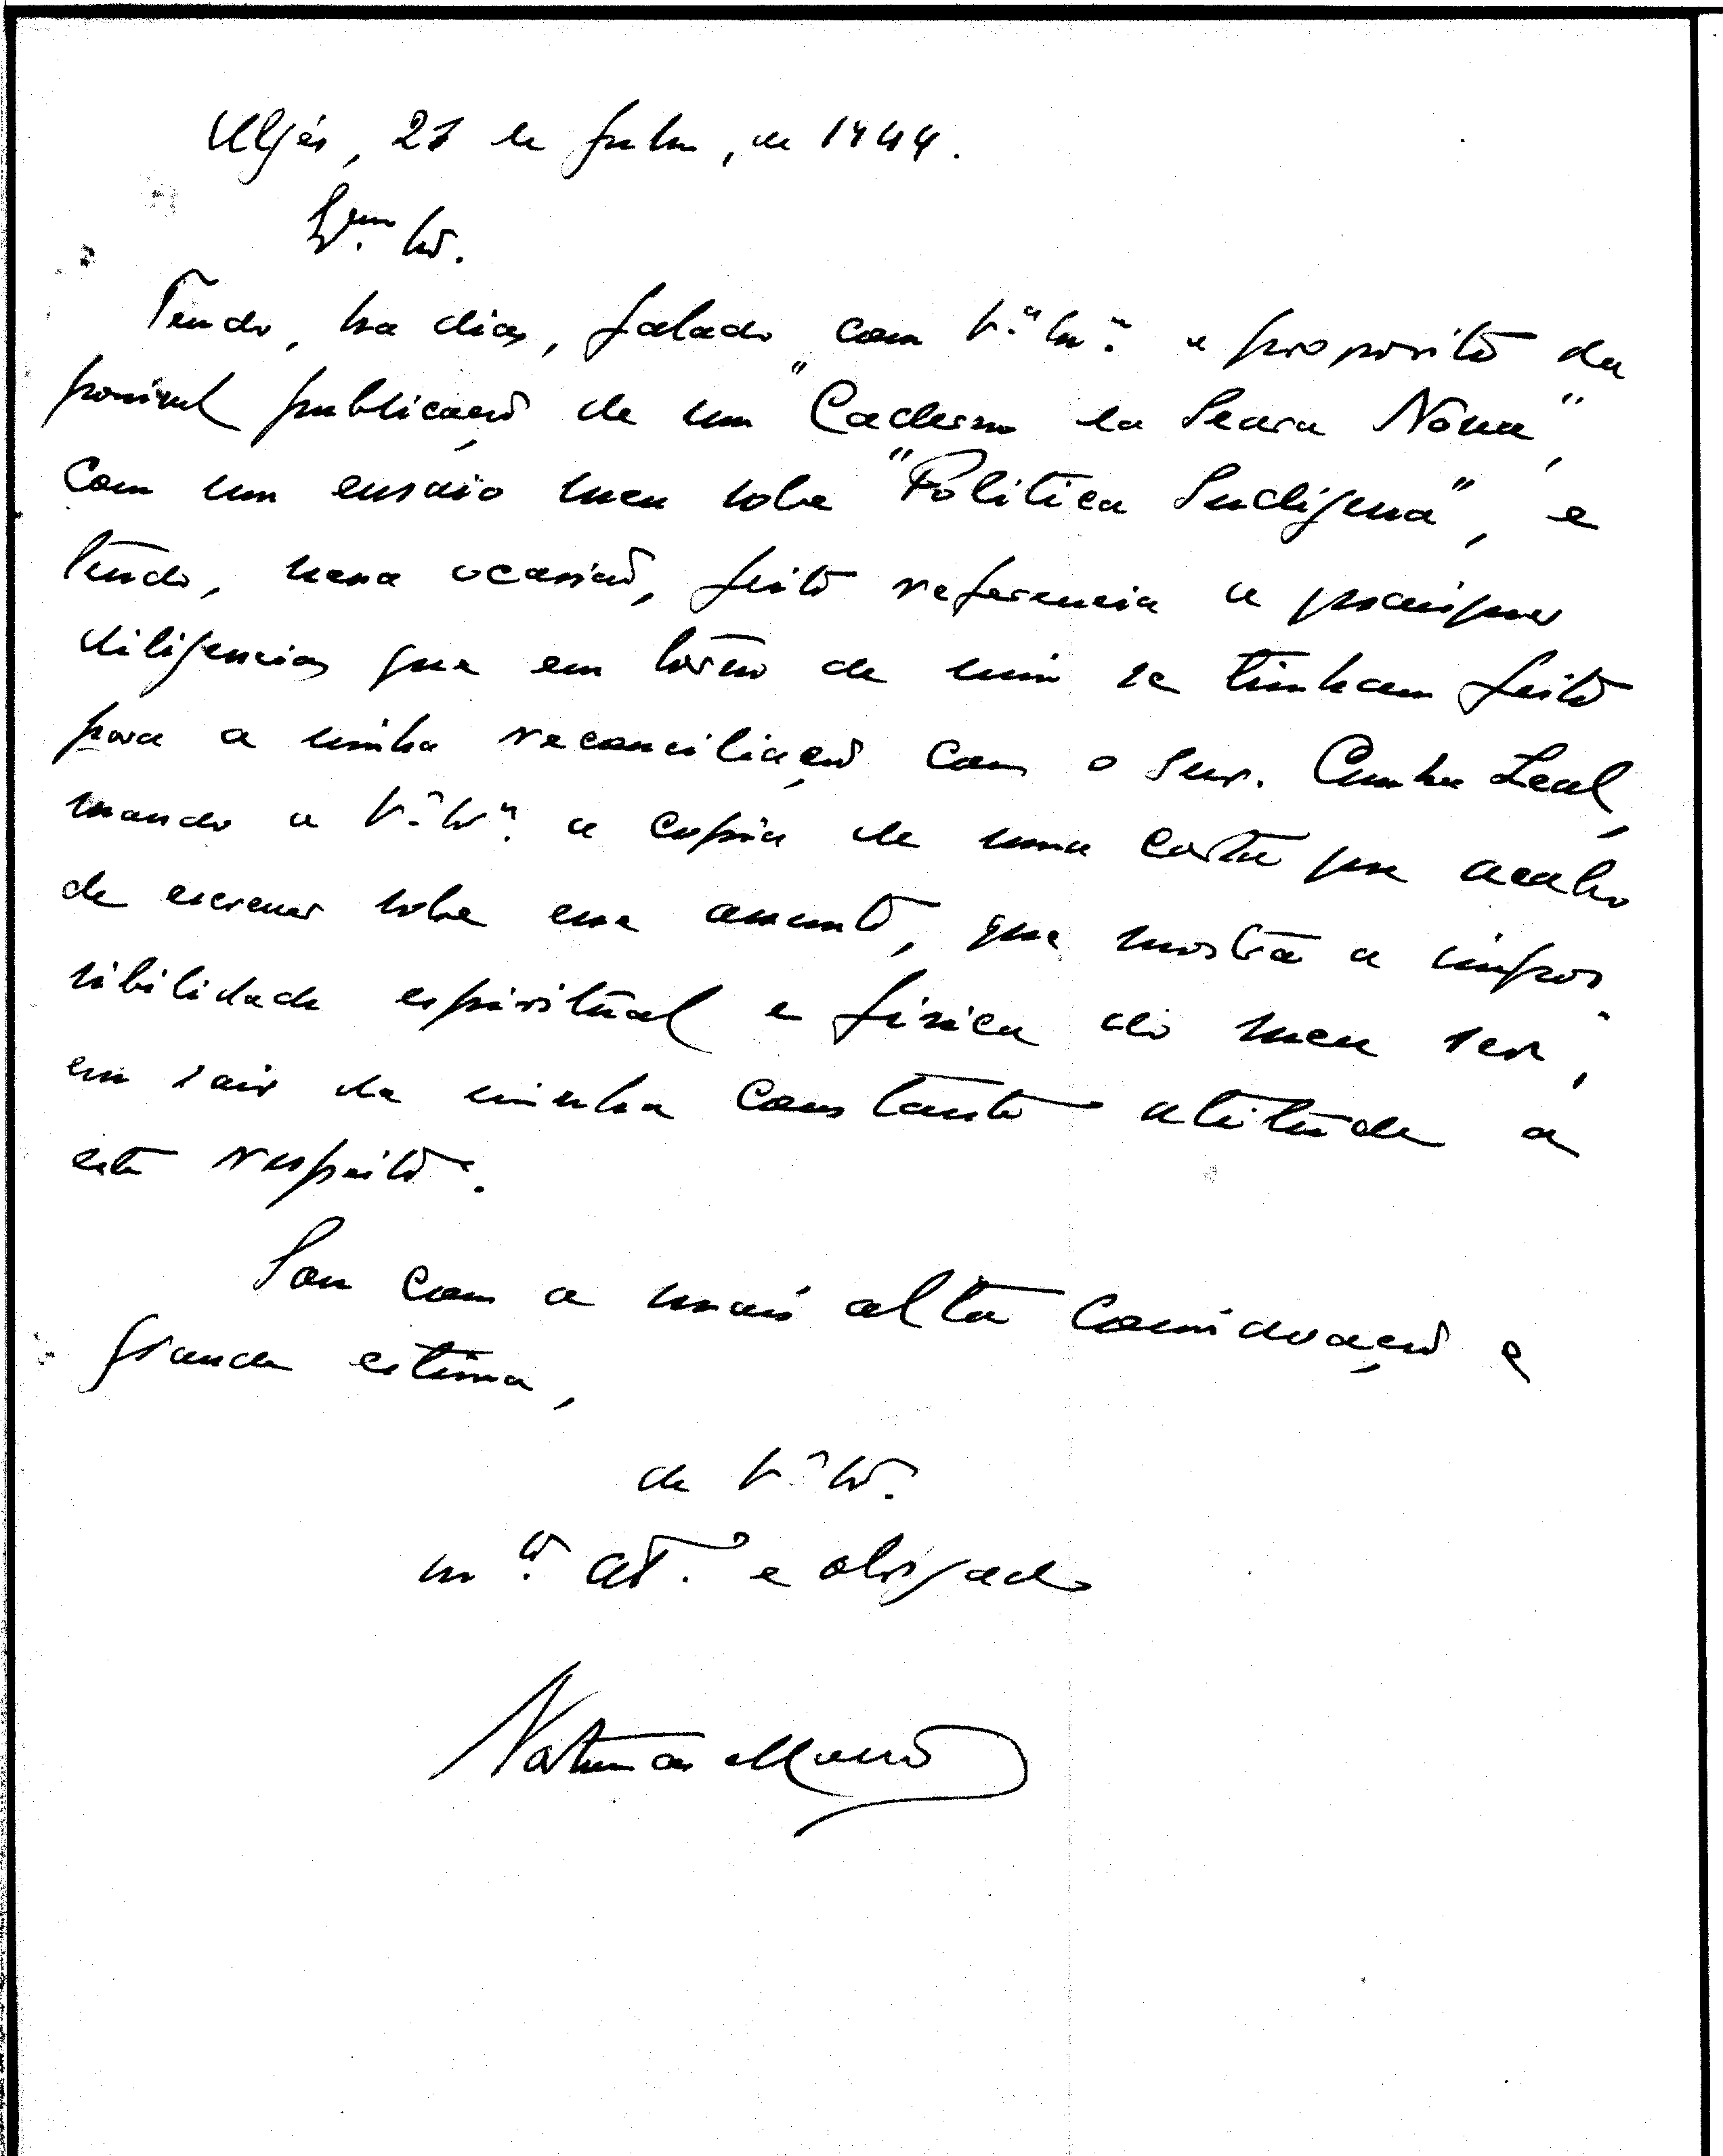 Algés, 27 de Julho, de 1944.
Exmo Sr.
Tendo, ha dias, falado com V.ª Ex.ª a proposito da
possivel publicação de um "Caderno da Seara Nova",
com um ensaio meu sobre "Politica Indigena", e
tendo, nessa ocasião, feito referencia a quaisquer
diligencias que em torno de mim se tinham feito
para a minha reconciliação com o Snr. Cunha Leal,
mando a V.ª Ex.ª a copia de uma carta que acabo
de escrever sobre esse assunto, que mostra a impos
sibilidade espiritual e fisica do meu ser,
em sair da minha constante atitude a
este respeito.
Sou com a mais alta consideração e
grande estima,
de V.ª Ex.
m.to at.o e obrigado
Norton de Mattos